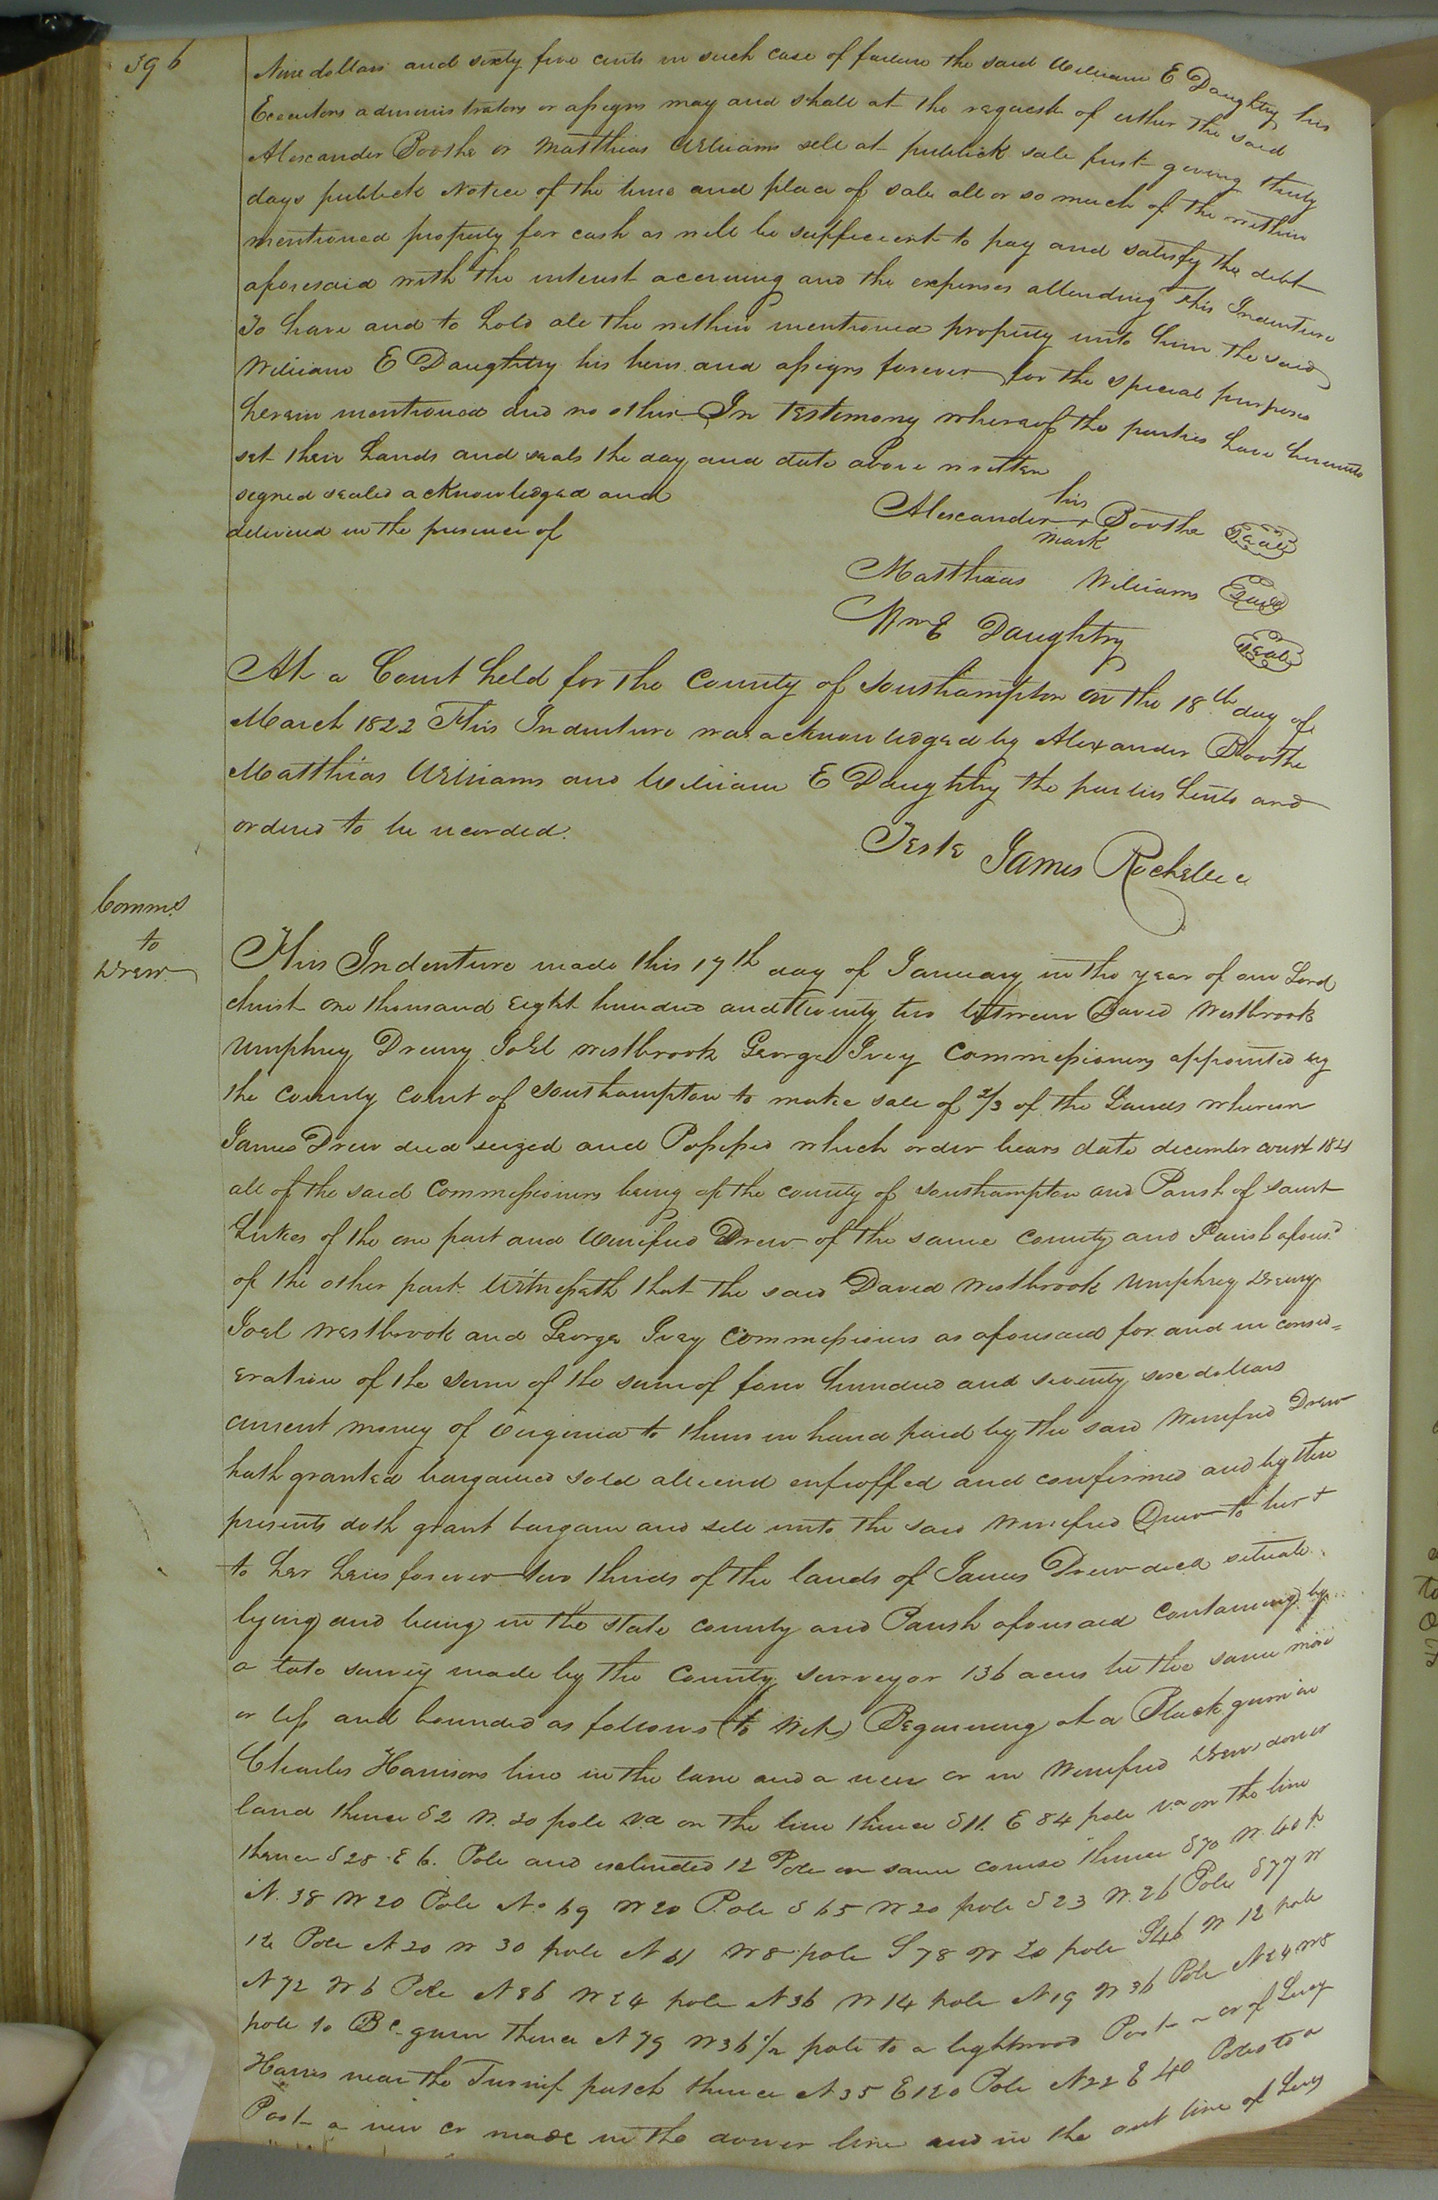 396
Nine dollars and sixty five cents in such case of failure the said William E Daughtry his
Executors administrators or assigns may and shall at the request of either the said
Alexander Boothe or Matthias Williams sell at publick sale first giving thirty
days publick Notice of the time and place of sale all or so much of the within
mentioned property for cash as will be sufficient to pay and satisfy the debt
aforesaid with the interest accruing and the expenses attending this Indenture
To have and to hold all the within mentioned property unto him the said
William E Daughtry his heirs and assigns forever for the special purposes
herein mentioned and no other In Testimony whereof the parties have hereunto
set their hands and seals the day and date above written
signed sealed acknowledged and
delivered in the presence of
his
Alexander + Boothe Seal
mark
Matthias Williams Seal
Wm E Daughtry Seal
At a Court held for the County of Southampton on the 18th day of
March 1822 This Indenture was acknowledged by Alexander Boothe
Matthias Williams and William E Daughtry the parties hereto and
ordered to be recorded.
Teste James Rochelle c
Comms
to
Drew
This Indenture made this 17th day of January in the year of our Lord
christ one thousand eight hundred and twenty two between David Westbrook
Umphrey Drewry Joel Westbrook George Ivey Commissioners appointed by
the County Court of Southampton to make sale of 2/3 of the Lands wherein
James Drew died seized and Possessed which order bears date december court 1821
all of the said Commissioners being of the county of Southampton and Parish of Saint
Lukes of the one part and Winifred Drew of the same county and Parish aforesd
of the other part Witnesseth that the said David Westbrook Umphrey Drewry
Joel Westbrook and George Ivey Commissioners as aforesaid for and in consid=
eration of the sum of the sum of four hundred and seventy six dollars
current money of Virginia to them in hand paid by the said Winifred Drew
hath granted bargained sold aliend enfeoffed and confirmed and by these
presents doth grant bargain and sell unto the said Winifred Drew to her +
to her heirs forever two thirds of the lands of James Drew decd situate
lying and being in the State county and Parish aforesaid containing by
a late survey made by the County surveyor 136 acres be the same more
or less and bounded as follows (to Wit) Beginning at a Black gum in
Charles Harrisons line in the lane and a new cr in Winifred Drews dower
land thence S 2 W. 30 pole Va on the line thence S 11. E 84 pole Va on the line
thence S 28 E 6. Pole and extended 12 Pole on same course thence S 70 W. 40 P
N. 38 W 20 Pole No 69 W 20 Pole S 65 W 20 pole S 23 W. 26 Pole S 77 W
12 Pole N 20 W 30 pole N 61 W 8 pole S 78 W 20 pole S 46 W 12 pole
N 72 W 6 Pole N 86 W 24 pole N 36 W 14 pole N 19 W 36 Pole N 24 W 8
pole to Bc. gum thence N 79 W 36 1/2 pole to a lightwood Post a cr of Levy
Harris near the Turnip patch thence N 35 E 120 Pole N 22 E 40 Poles to a
Post a new cr made in the dower line and in the out line of Levy